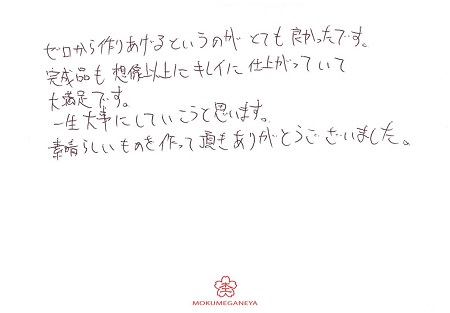 ゼロから作りあげるというのが とても良かったです。
完成品も 想像以上にキレイに仕上がっていて
大満足です。
一生大事にしていこうと思います。
素晴らしいものを作って頂きありがとうございました。
杢
MOKUMEGANEYA